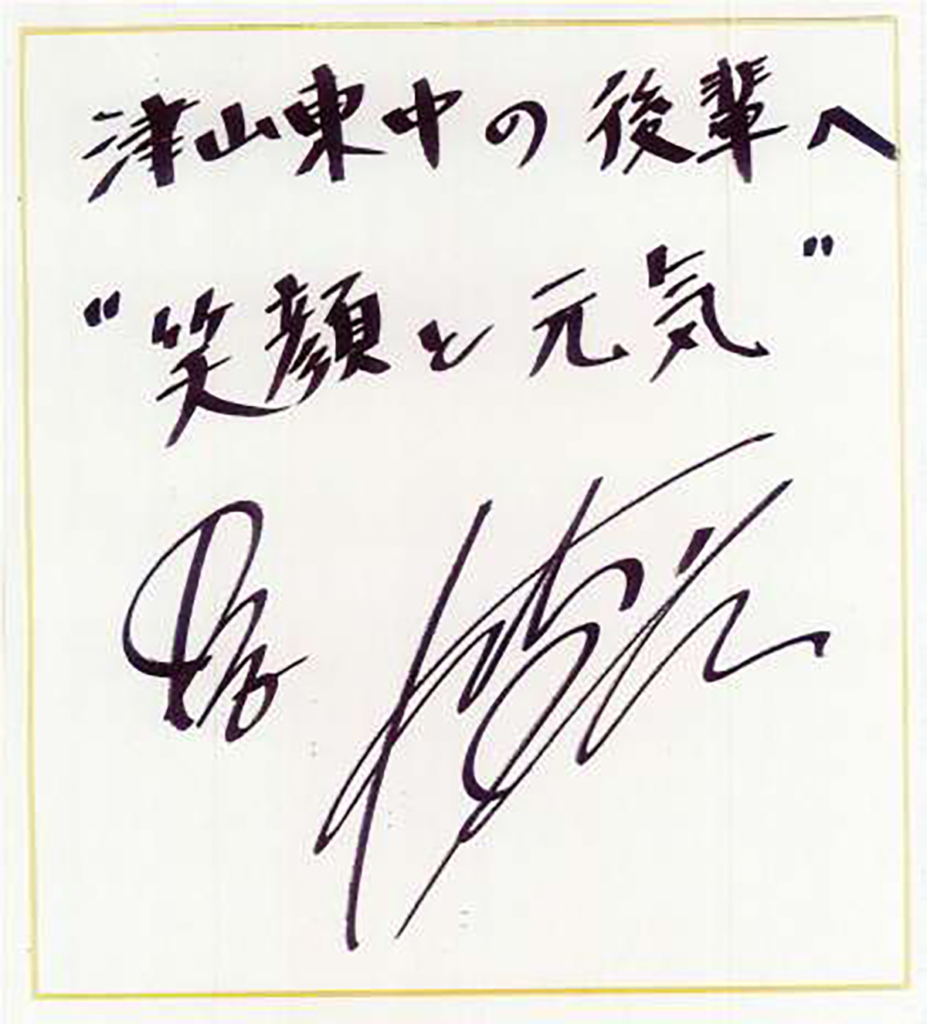 津山東中の後輩へ
"笑顔と元気"